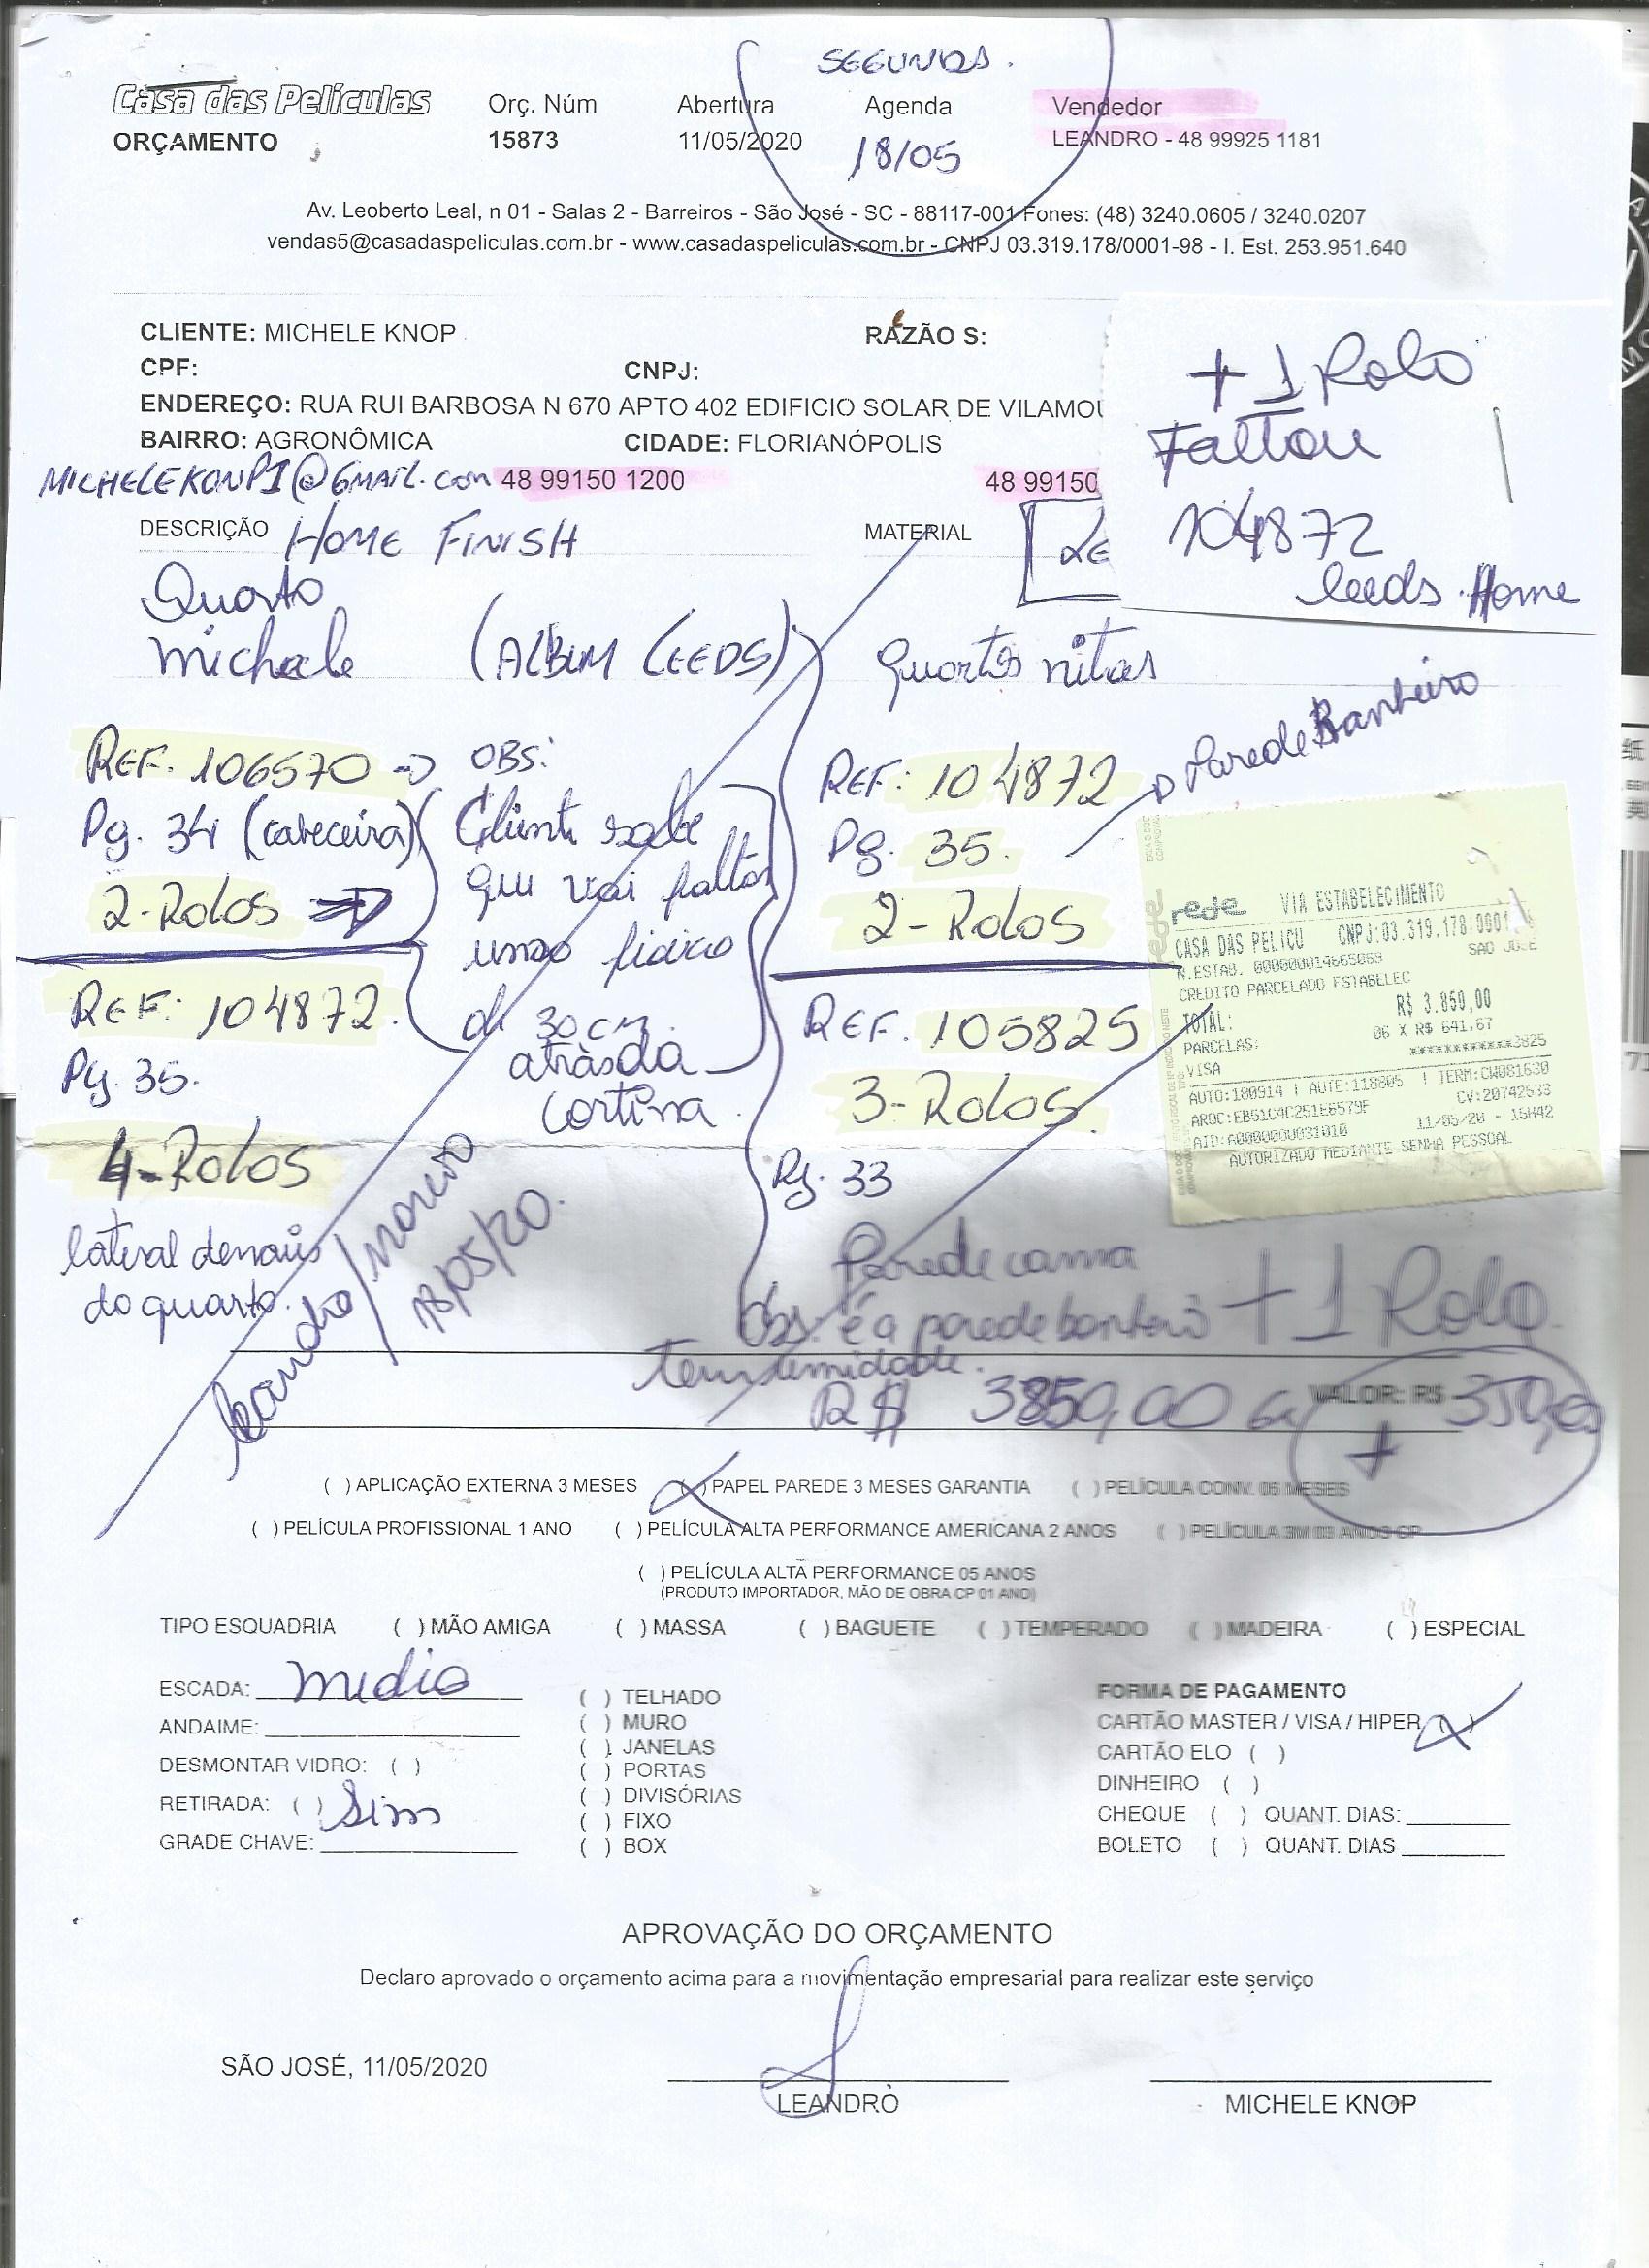 SEGUNDA.
Casa das Películas
ORÇAMENTO
Orç. Núm
15873
Abertura
11/05/2020
Agenda
18/05
Vendedor
LEANDRO - 48 99925 1181
Av. Leoberto Leal, n 01 - Salas 2 - Barreiros - São José - SC - 88117-001 Fones: (48) 3240.0605 / 3240.0207
vendas5@casadaspeliculas.com.br - www.casadaspeliculas.com.br - CNPJ 03.319.178/0001-98 - I. Est. 253.951.640
CLIENTE: MICHELE KNOP
RAZÃO S:
CPF:
CNPJ:
ENDEREÇO: RUA RUI BARBOSA N 670 APTO 402 EDIFICIO SOLAR DE VILAMOU
BAIRRO: AGRONÔMICA
CIDADE: FLORIANÓPOLIS
MICHELEKONPI@GMAIL.COM 48 99150 1200
48 99150
+ 1 Rolo
Faltou
104872
leeds Home
DESCRIÇÃO HOME FINISH
MATERIAL
LE
Quarto
Michele
(ALBUM LEEDS)
REF. 106570
Pg. 34 (cabeceira)
2-Rolos
OBS:
Cliente sabe
que vai faltar
uma
de 30 cm.
atràs da
cortina.
REF: 104872.
Pg. 35.
4-Rolos
lateral demais
do quarto.
Leandro/
18/05/20.
quartos
REF: 104872
Parede Banheiro
Pg. 35.
2-Rolos
REF. 105825
3-Rolos.
Pg. 33
Parede cama
Obs: é a parede banheiro
tem umidade.
+ 1 Rolo
R$ 3850,00
VALOR: R$ 350,00
+
rede VIA ESTABELECIMENTO
CASA DAS PELICU CNPJ:03.319.178/0001
SAO JOSE
N.ESTAB. 000000014665069
CREDITO PARCELADO ESTABELEC
TOTAL: R$ 3.850,00
PARCELAS: 06 X R$ 641,67
VISA ************3825
AUTO:180914 | AUTE:118805 | TERM:CW081630
CV:20742533
ARQC:EB51C4C251E6579F
11/05/20 - 15H42
AID:A0000000031010
AUTORIZADO MEDIANTE SENHA PESSOAL
( ) APLICAÇÃO EXTERNA 3 MESES
( ) PAPEL PAREDE 3 MESES GARANTIA
( ) PELÍCULA CONV. 06 MESES
( ) PELÍCULA PROFISSIONAL 1 ANO
( ) PELÍCULA ALTA PERFORMANCE AMERICANA 2 ANOS
( ) PELÍCULA 3M 03 ANOS CP
( ) PELÍCULA ALTA PERFORMANCE 05 ANOS
(PRODUTO IMPORTADOR, MÃO DE OBRA CP 01 ANO)
TIPO ESQUADRIA ( ) MÃO AMIGA ( ) MASSA ( ) BAGUETE ( ) TEMPERADO ( ) MADEIRA ( ) ESPECIAL
ESCADA: media
ANDAIME:
DESMONTAR VIDRO: ( )
RETIRADA: ( ) Sim
GRADE CHAVE:
( ) TELHADO
( ) MURO
( ) JANELAS
( ) PORTAS
( ) DIVISÓRIAS
( ) FIXO
( ) BOX
FORMA DE PAGAMENTO
CARTÃO MASTER / VISA / HIPER ( )
CARTÃO ELO ( )
DINHEIRO ( )
CHEQUE ( ) QUANT. DIAS:
BOLETO ( ) QUANT. DIAS
APROVAÇÃO DO ORÇAMENTO
Declaro aprovado o orçamento acima para a movimentação empresarial para realizar este serviço
SÃO JOSÉ, 11/05/2020
LEANDRO
MICHELE KNOP